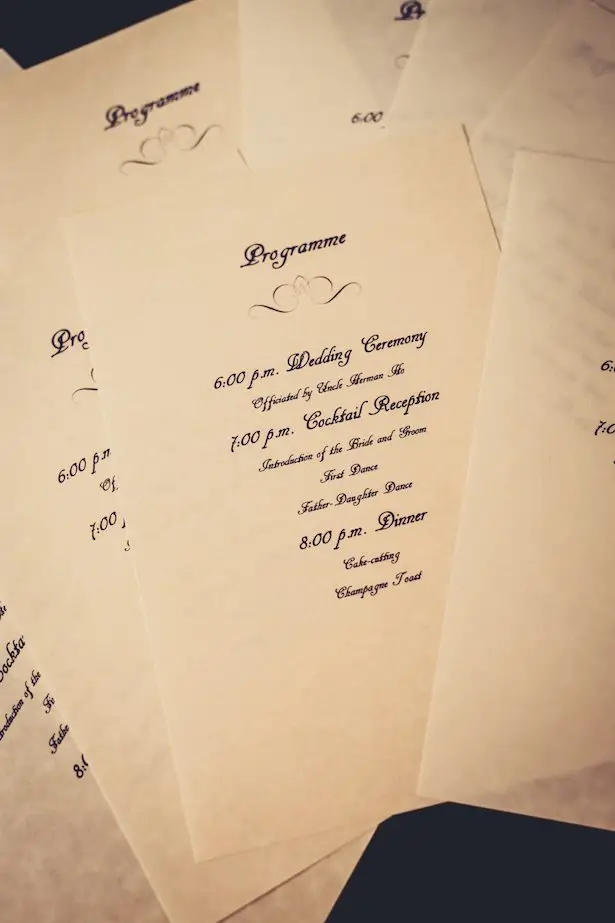 Programme
6:00 p.m. Wedding Ceremony
Officiated by Uncle Herman Ho
7:00 p.m. Cocktail Reception
Introduction of the Bride and Groom
First Dance
Father-Daughter Dance
8:00 p.m. Dinner
Cake-cutting
Champagne Toast
Programme
Pr
6:00
Prog
6:00 p.m
Of
7:00 p
Cocktai
troduction of the
Fi
Fathe
8:0
6:
7:0